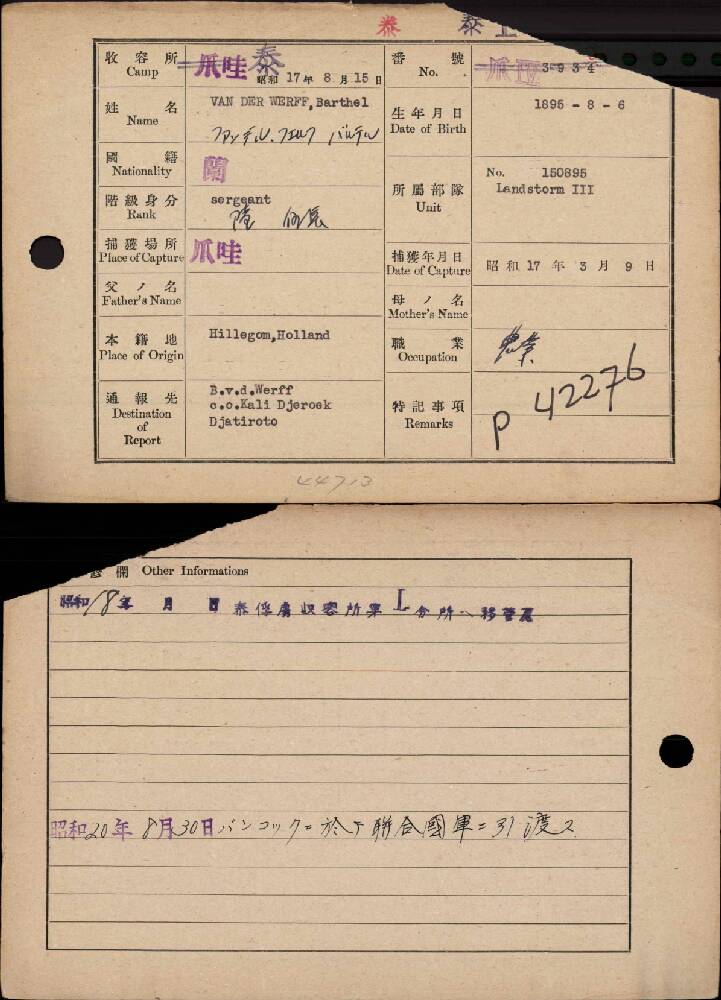 泰 泰 I
收容所 Camp 爪哇 泰 昭和17年8月15日
番號 No. 爪哇 3934
姓名 Name VAN DER WERFF, Barthel
ファン デル. ウエルフ バルテル
生年月日 Date of Birth 1895 - 8 - 6
國籍 Nationality 蘭
階級身分 Rank sergeant
陸 伍長
所屬部隊 Unit No. 150895
Landstorm III
捕獲場所 Place of Capture 爪哇
捕獲年月日 Date of Capture 昭和17年3月9日
父ノ名 Father's Name
母ノ名 Mother's Name
本籍地 Place of Origin Hillegom, Holland
職業 Occupation 農業
通報先 Destination of Report B.v.d.Werff
c.o.Kali Djeroek
Djatiroto
特記事項 Remarks P 42276
44713
欄 Other Informations
昭和18年 月 日 泰俘虜収容所第I分所ヘ移管ス
昭和20年8月30日バンコックニ於テ聯合國軍ニ引渡ス